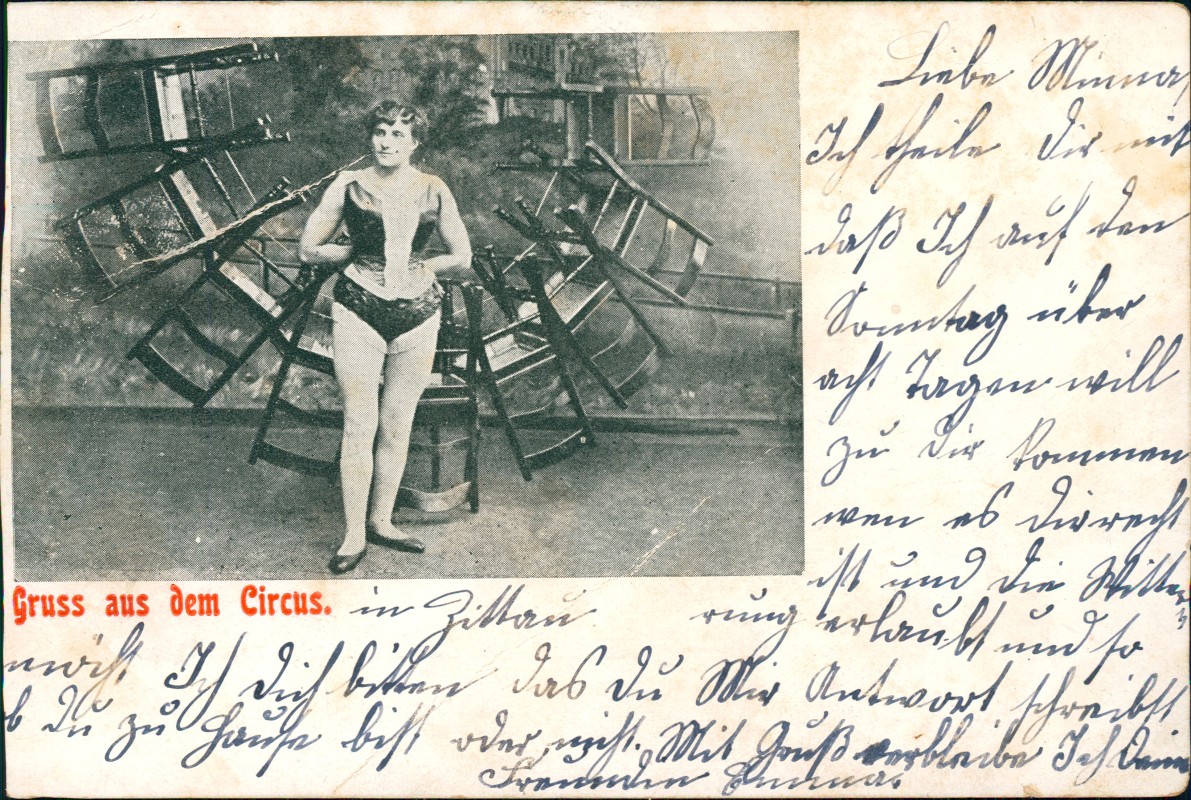 Liebe Minna,
Ich theile Dir mit
daß Ich auf den
Sonntag über
acht Tagen will
zu Dir kommen
wen es Dir recht
ist und die Witte-
Gruss aus dem Circus. in Zittau
rung erlaubt und so
möcht Ich Dich bitten das Du Mir Antwort schreibst
ob Du zu Hause bist oder nicht. Mit Gruß verbleibe Ich Deine
Freundin Emma.